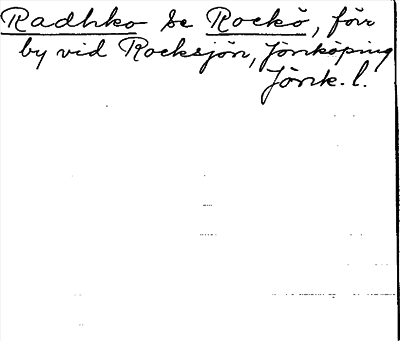 Radhko se Rockö, förr
by vid Rocksjön, Jönköping
Jönk. l.